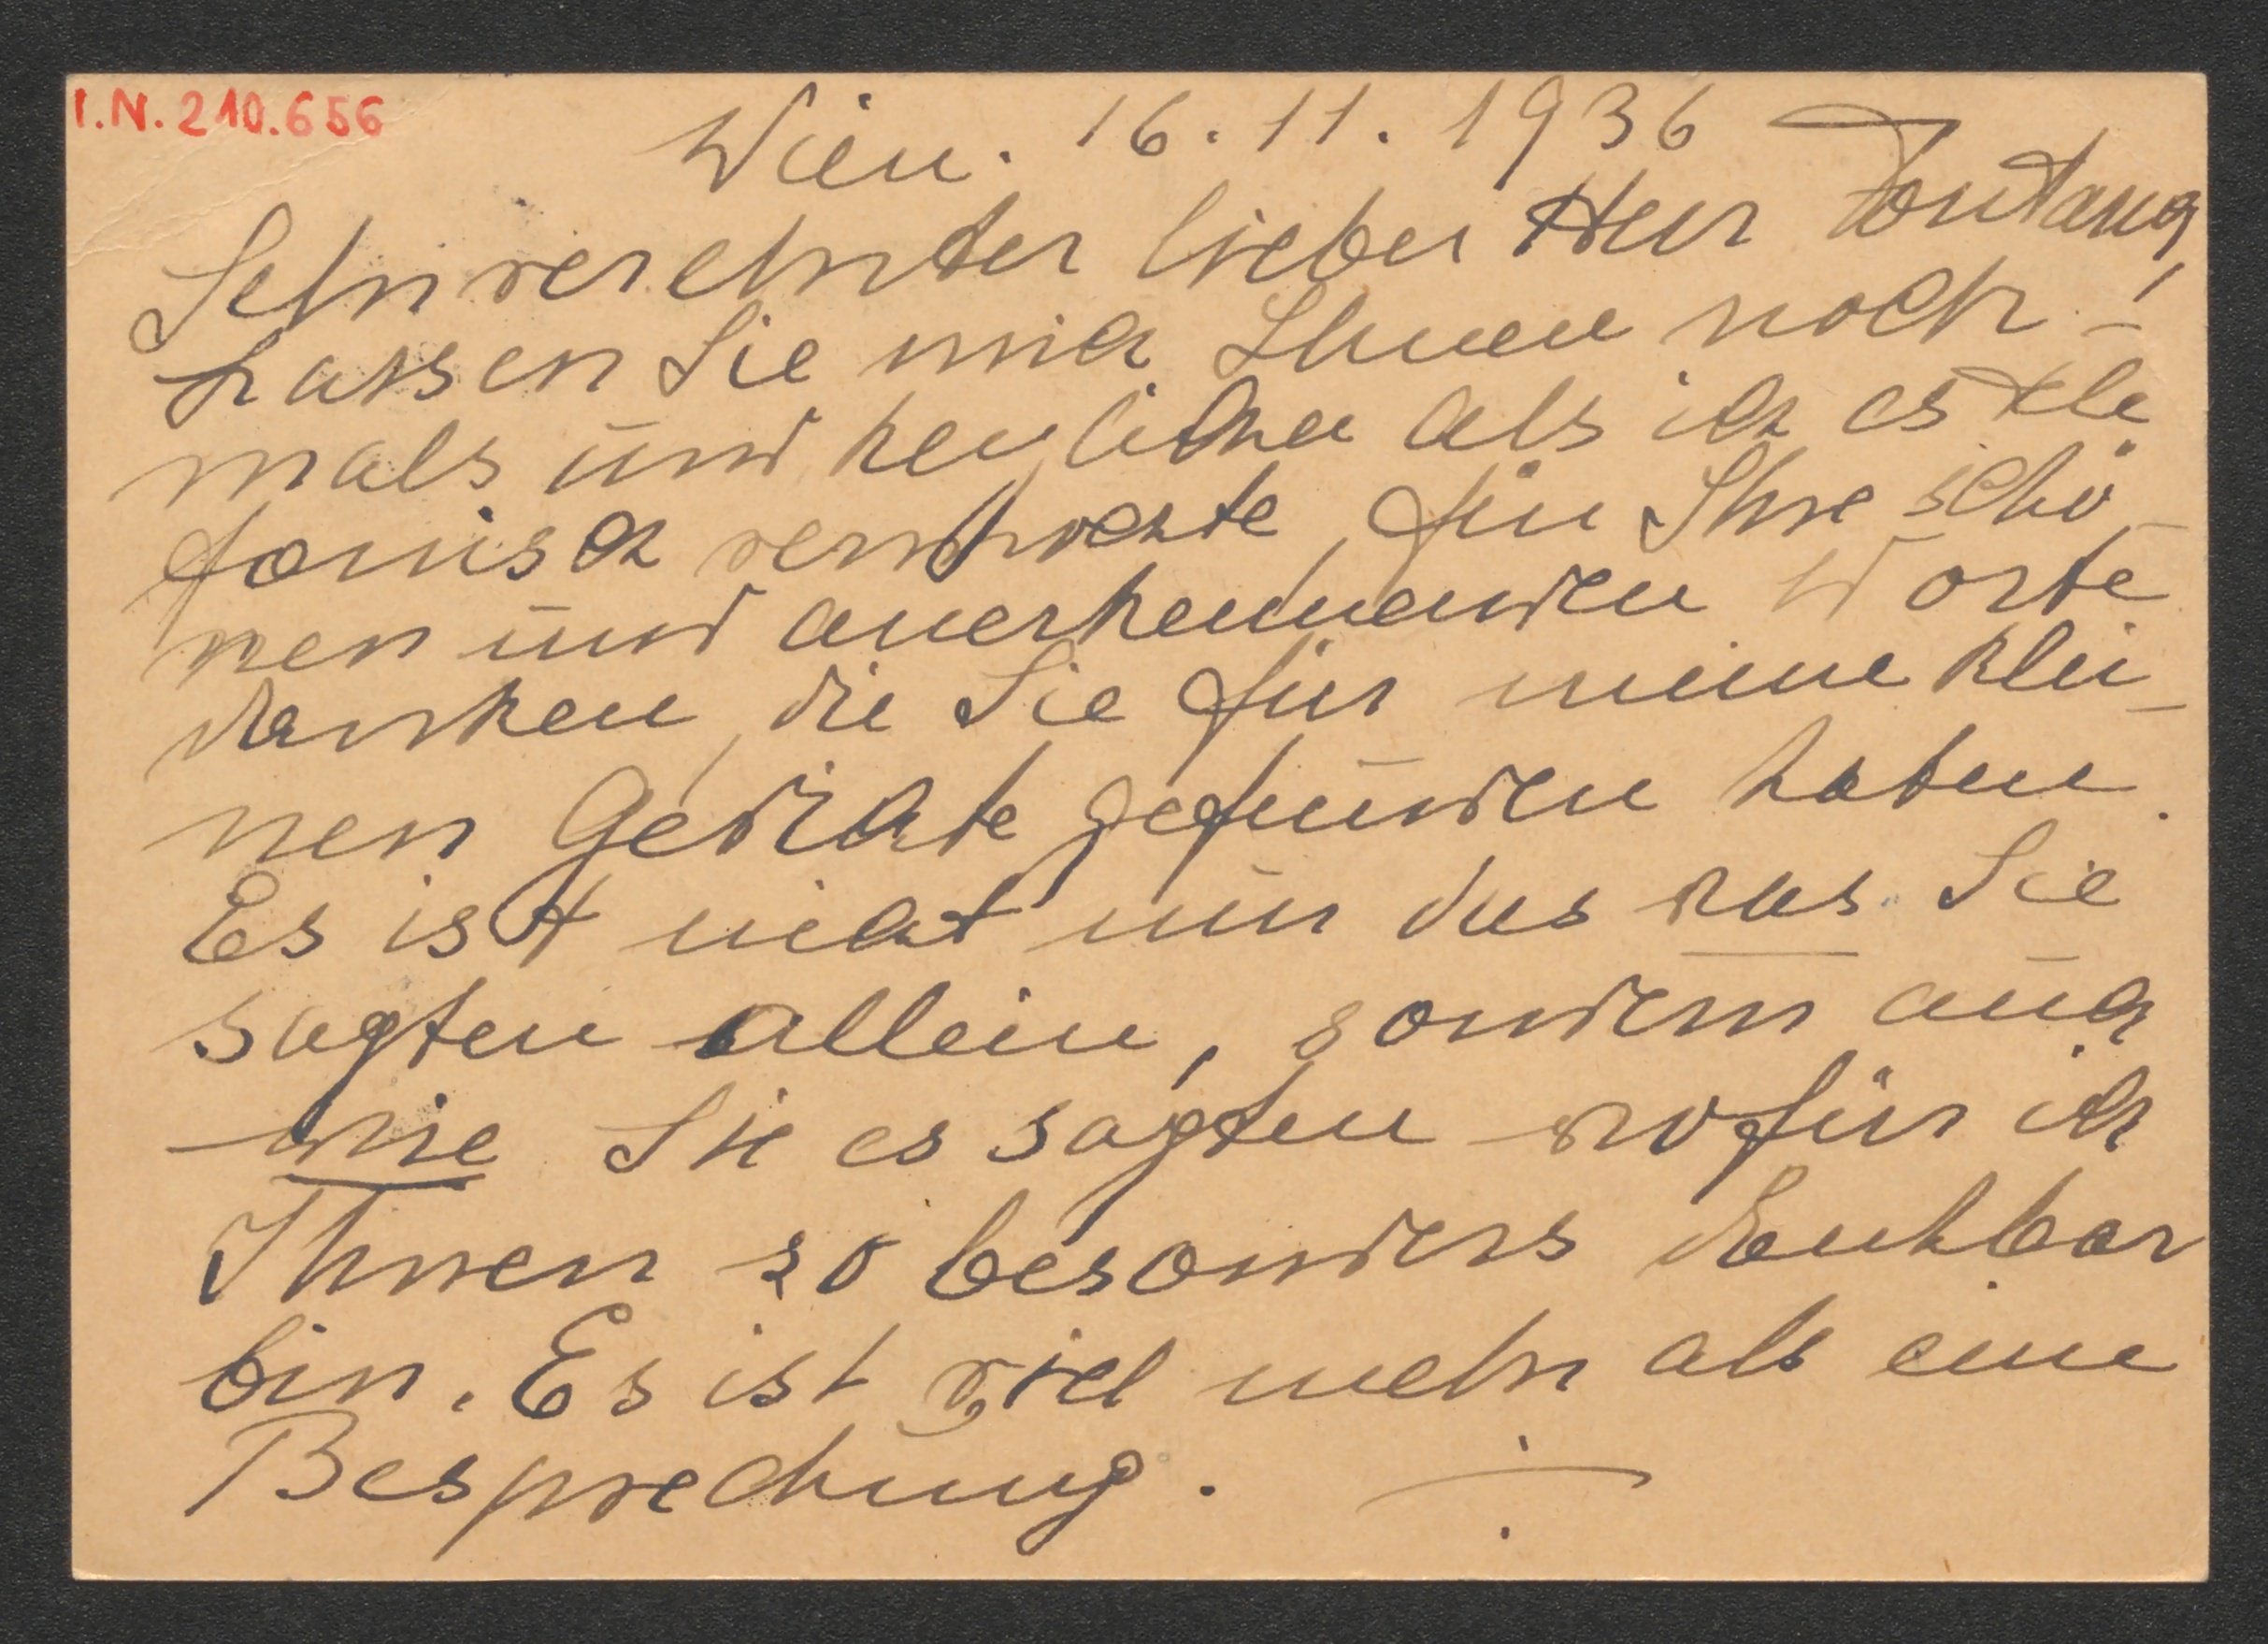 I.N. 210.656
Wien. 16.11.1936
Sehrverehrter lieber Herr Fontana,
Lassen Sie mich Ihnen noch-!
mals und herzlicher als ich es tele
fonisch vermochte, für Ihre schö-
nen und anerkennenden Worte
danken, die Sie für meine klei-
nen Gedichte gefunden haben.
Es ist nicht nur das was Sie
sagten allein, sondern auch
wie Sie es sagten wofür ich
Ihnen so besonders dankbar
bin. Es ist viel mehr als eine
Besprechung. ÷